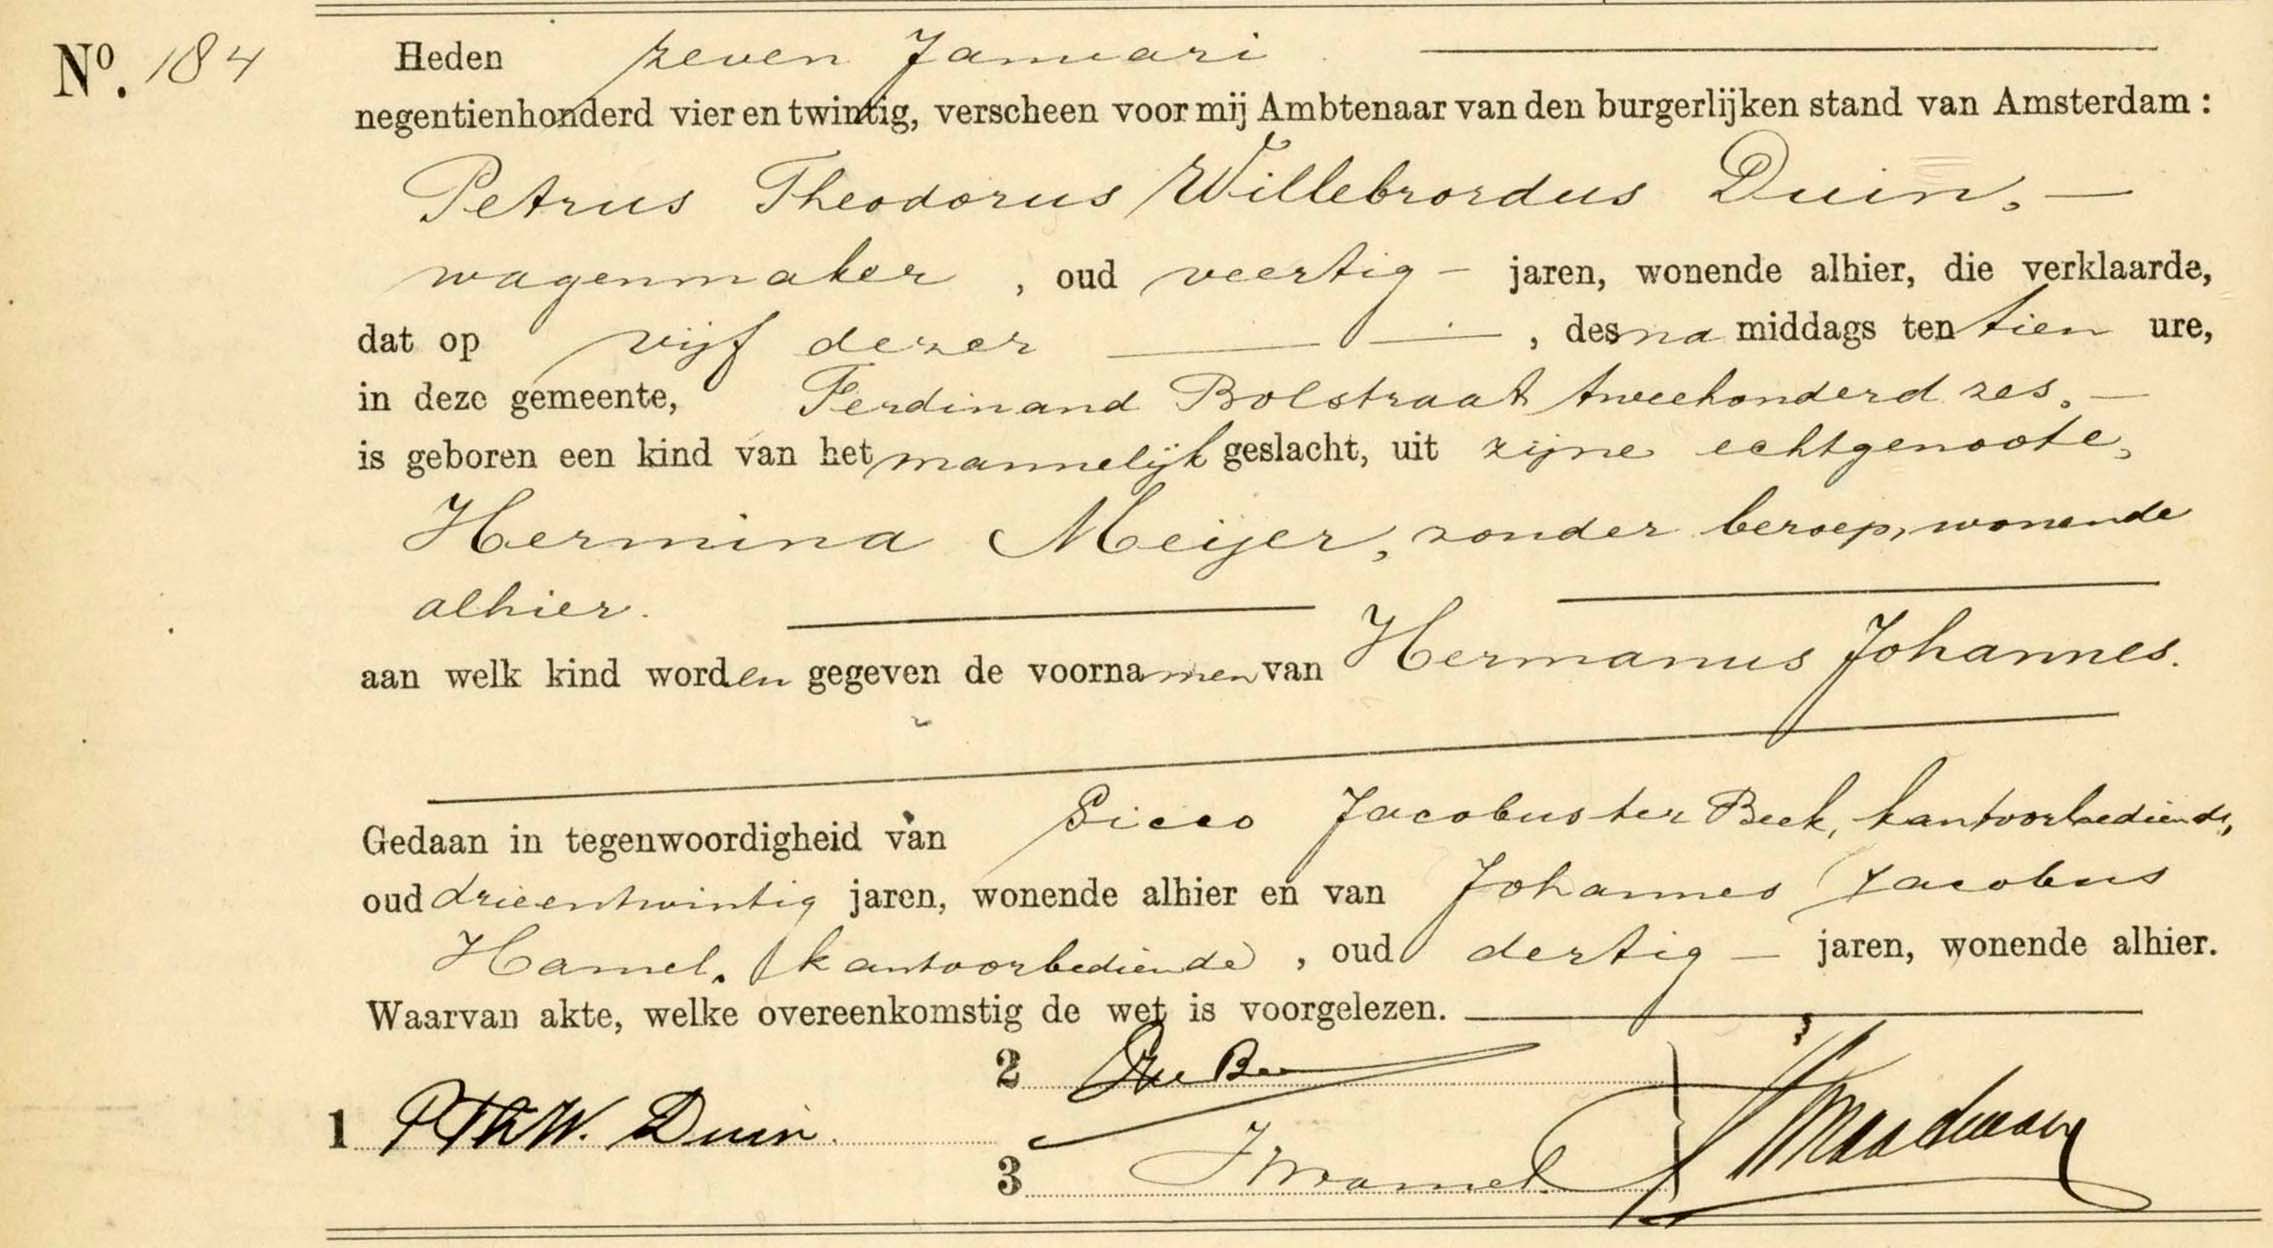 No. 184
Heden zeven Januari
negentienhonderd vier en twintig, verscheen voor mij Ambtenaar van den burgerlijken stand van Amsterdam:
Petrus Theodorus Willebrordus Duin,
wagenmaker, oud veertig jaren, wonende alhier, die verklaarde,
dat op vijf dezer, des na middags ten tien ure,
in deze gemeente, Ferdinand Bolstraat tweehonderd zes,
is geboren een kind van het mannelijk geslacht, uit zijne echtgenoote,
Hermina Meijer, zonder beroep, wonende
alhier.
aan welk kind worden gegeven de voornamen van Hermanus Johannes.
Gedaan in tegenwoordigheid van Sicco Jacobus ter Beek, kantoorbediende,
oud drieentwintig jaren, wonende alhier en van Johannes Jacobus
Hamel, kantoorbediende, oud dertig jaren, wonende alhier.
Waarvan akte, welke overeenkomstig de wet is voorgelezen.
2
1 P Th W. Duin
3 Hamel